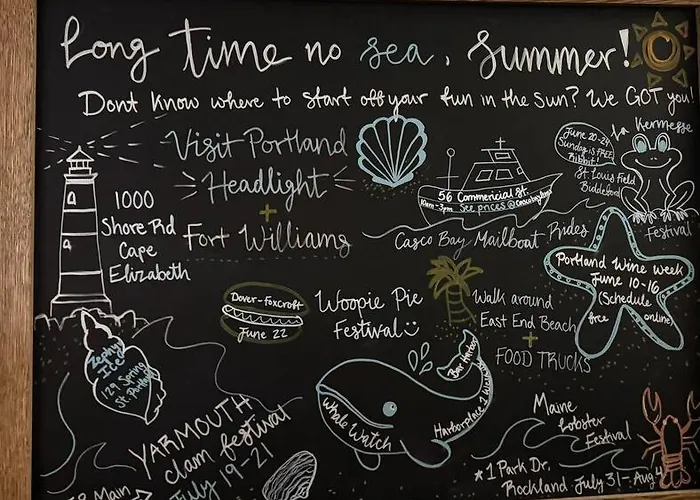 Long time no sea, Summer!
Dont Know where to start off your fun in the sun? We GOT you!
Visit Portland
Headlight
+
Fort Williams
1000
Shore Rd
Cape
Elizabeth
56 Commercial St.
10am-3pm See prices @
Casco Bay Mailboat Rides
June 20-24
Sunday is FREE
Ribbit!
La Kermesse
St. Louis Field
Biddeford
Festival
Portland Wine Week
June 10-16
(Schedule
free online)
Dover-foxcroft
June 22
Woopie Pie
Festival
Walk around
East End Beach
+
FOOD TRUCKS
129 Spring
St. Portland
Whale Watch
Bar Harbor
Harborplace 1 West St
YARMOUTH
Clam festival
July 19-21
Main
Maine
Lobster
Festival
*1 Park Dr.
Rockland July 31-Aug 4